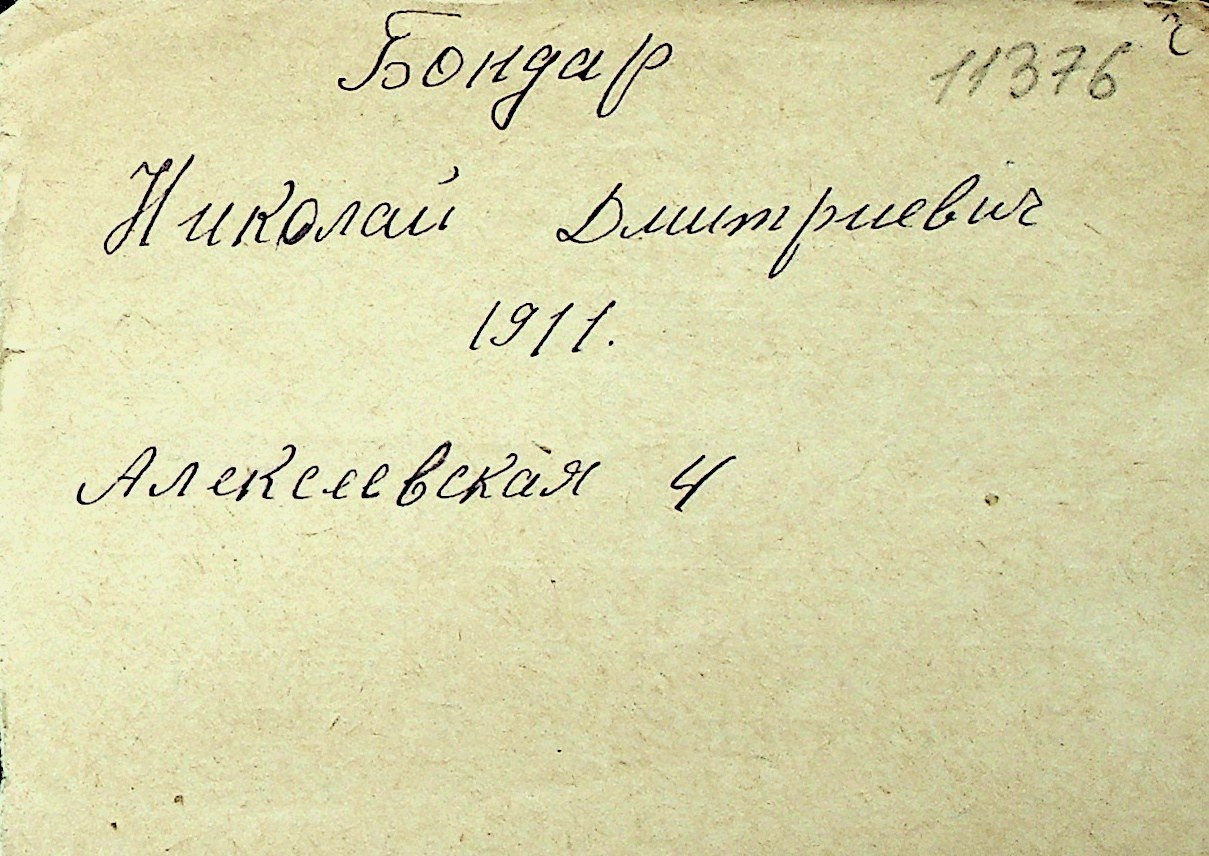 Бондар 11376
Николай Дмитриевич
1911.
Алексеевская 4